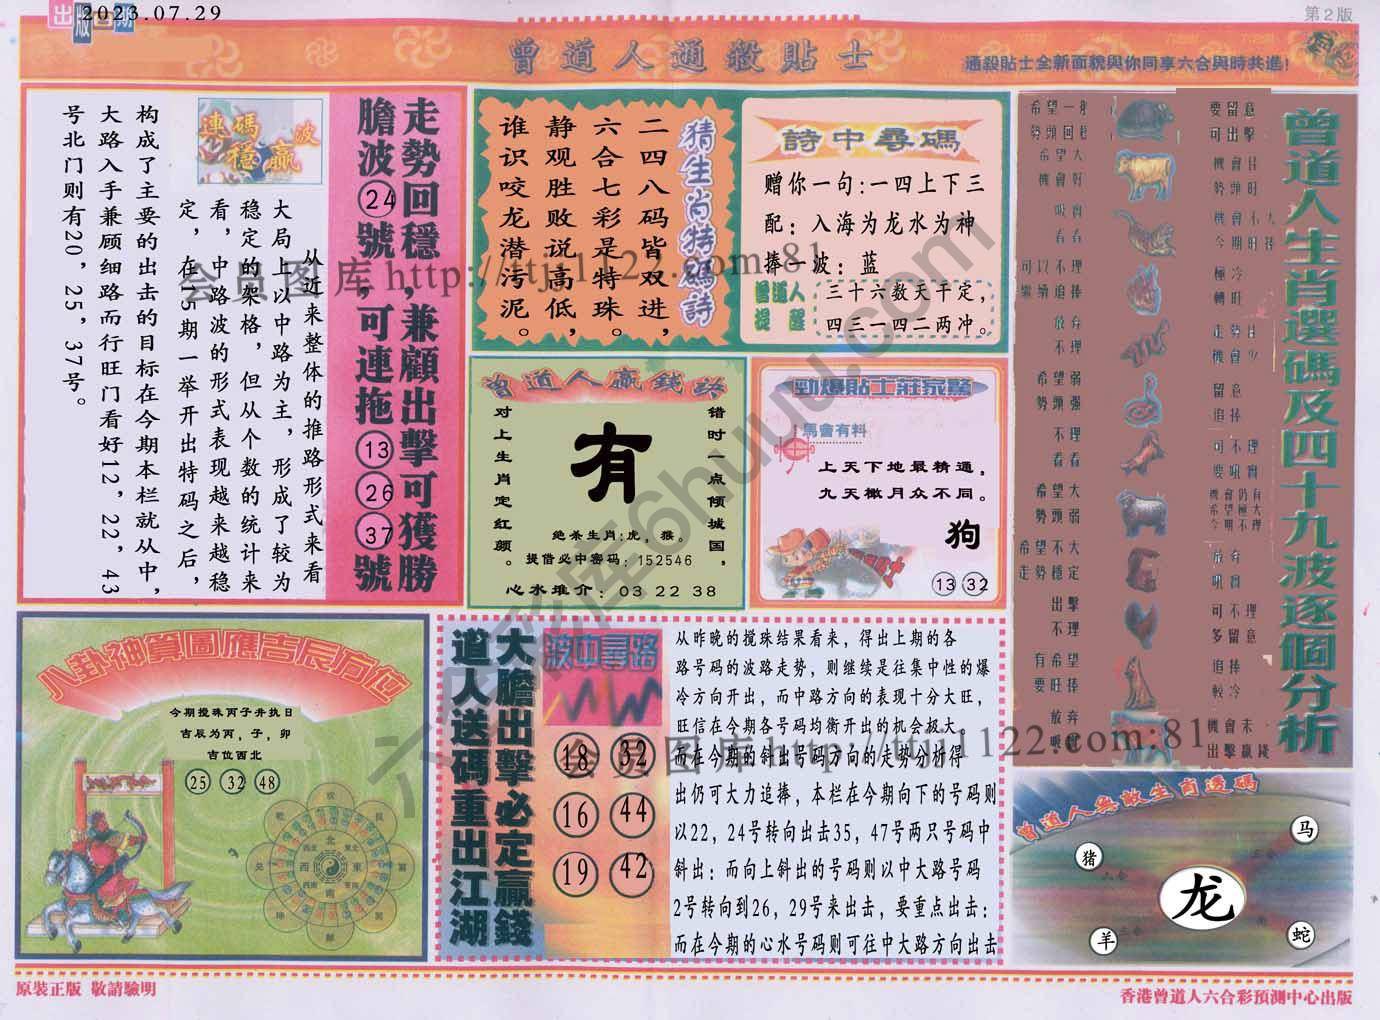 出版日期
2023.07.29
第2版
曾道人通殺貼士
通殺貼士全新面貌與你同享六合與時共進!
走勢回穩,兼顧出擊可獲勝
膽波24號,可連拖13 26 37號
連碼波
穩贏
从近来整体的推路形式来看
大局上以中路为主,形成了较为
稳定的架格,但从个数的统计来
看,中路波的形式表现越来越稳
定,在15期一举开出特码之后,
构成了主要的出击的目标在今期本栏就从中,
大路入手兼顾细路而行旺门看好12,22,43
号北门则有20,25,37号。
猜生肖特碼詩
二四八码皆双进,
六合七彩是特珠。
静观胜败说高低,
谁识咬龙潜污泥。
詩中尋碼
赠你一句:一四上下三
配:入海为龙水为神
捧一波:蓝
曾道人
提醒
三十六数天干定,
四三一四二两冲。
曾道人贏錢訣
错时一点倾城国,
对上生肖定红颜。
有
绝杀生肖:虎,猴。
提借必中密码:152546
心水堆介:03 22 38
勁爆貼士莊家驚
馬會有料
上天下地最精通,
九天橄月众不同。
狗
13 32
曾道人生肖選碼及四十九波逐個分析
要留意
可出擊
機會佳
勢頭旺
可不理
要吼實
可不理
多留意
追捧
較冷
機會未
出擊贏錢
希望大
機會好
可以不理
繼續追捧
放弃
不理
希望弱
勢頭强
不理
看看
希望大
勢頭弱
希望不大
走勢穩定
出擊
不理
有希望
要旺捧
八卦神算圖應吉辰方位
今期搅珠丙子井执日
吉辰为丙,子,卯
吉位西北
25 32 48
大膽出擊必定贏錢
道人送碼重出江湖
波中尋路
18 32
16 44
19 42
从昨晚的搅珠结果看来,得出上期的各
路号码的波路走势,则继续是往集中性的爆
冷方向开出,而中路方向的表现十分大旺,
旺信在今期各号码均衡开出的机会极大,
而在今期的斜出号码方向的走势分析得
出仍可大力追捧,本栏在今期向下的号码则
以22,24号转向出击35,47号两只号码中
斜出:而向上斜出的号码则以中大路号码
2号转向到26,29号来出击,要重点出击:
而在今期的心水号码则可往中大路方向出击
曾道人無敵生肖透碼
马
猪
龙
羊
蛇
原裝正版 敬請驗明
香港曾道人六合彩預測中心出版
会员图库 http://ttj1122.com:81
会员图库 http://ttj1122.com:81
六彩库6huuu.com